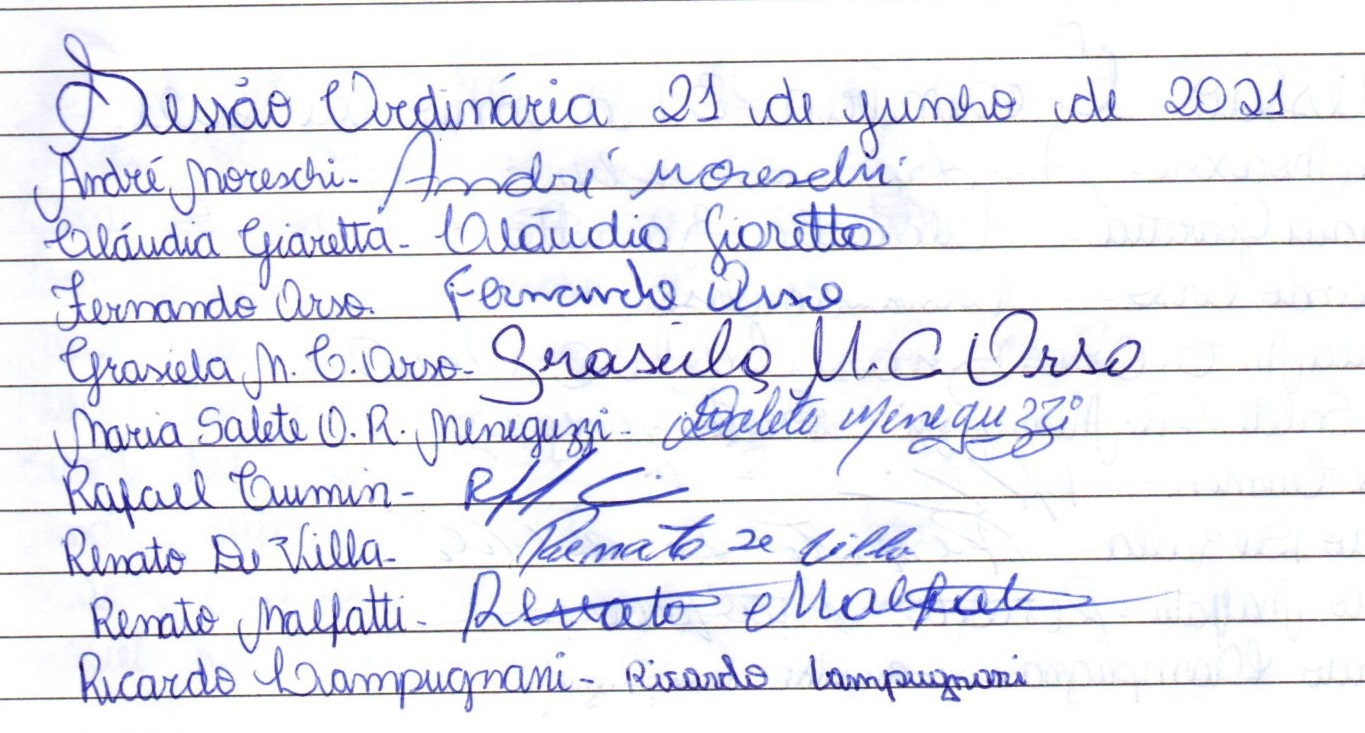 Sessão Ordinária 21 de junho de 2021
André Moreschi - André Moreschi
Cláudia Giaretta - Cláudia Giaretta
Fernando Orso. Fernando Orso
Grasiela M. C. Orso - Grasiela M. C Orso
Maria Salete O. R. Meneguzzi - Salete Meneguzzi
Rafael Cumin -
Renato De Villa - Renato De Villa
Renato Malfatti - Renato Malfatti
Ricardo Lampugnani - Ricardo Lampugnani